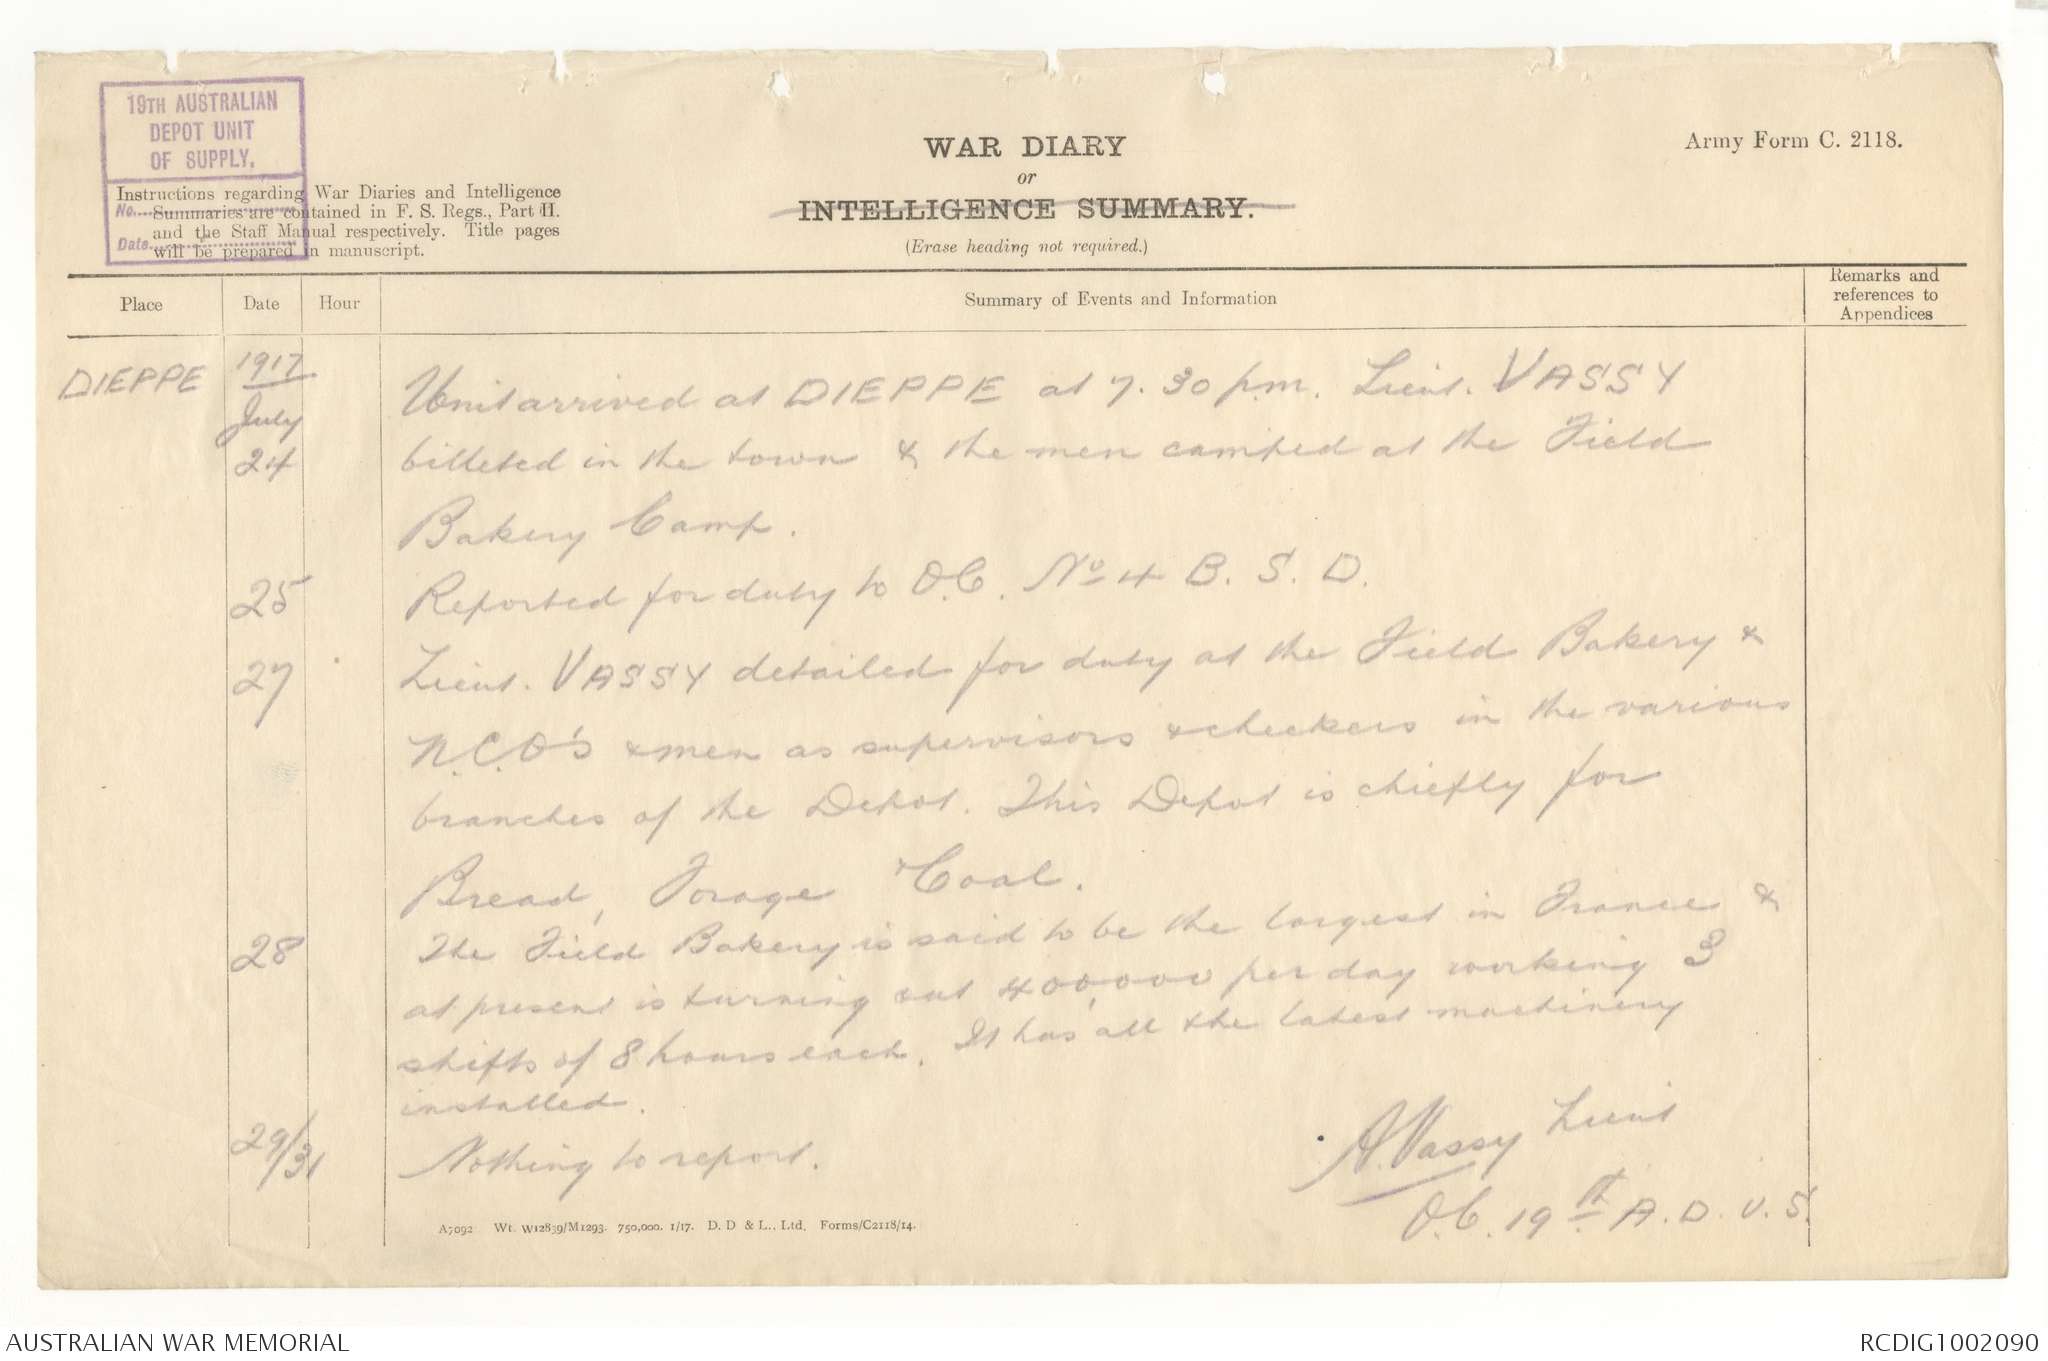 19TH AUSTRALIAN
DEPOT UNIT
OF SUPPLY.
No.
Date
Instructions regarding War Diaries and Intelligence
Summaries are contained in F. S. Regs., Part II.
and the Staff Manual respectively. Title pages
will be prepared in manuscript.
WAR DIARY
or
INTELLIGENCE SUMMARY.
(Erase heading not required.)
Army Form C. 2118.
Place
Date
Hour
Summary of Events and Information
Remarks and
references to
Appendices
DIEPPE
1917
July
24
Unit arrived at DIEPPE at 7.30 p.m. Lieut. VASSY
billeted in the town & the men camped at the Field
Bakery Camp.
25 Reported for duty to O.C. No 4 B. S. D.
27 Lieut. VASSY detailed for duty at the Field Bakery &
N.C.O's & men as supervisors & checkers in the various
branches of the Depot. This Depot is chiefly for
Bread, Forage Coal.
28 The Field Bakery is said to be the largest in France &
at present is turning out 400,000 per day working 3
shifts of 8 hours each. It has all the latest machinery
installed.
29/31 Nothing to report.
A. Vassy Lieut
O.C. 19th A. D. U. S.
A7092 Wt. W12839/M1293. 750,000. 1/17. D. D & L., Ltd. Forms/C2118/14.
AUSTRALIAN WAR MEMORIAL
RCDIG1002090